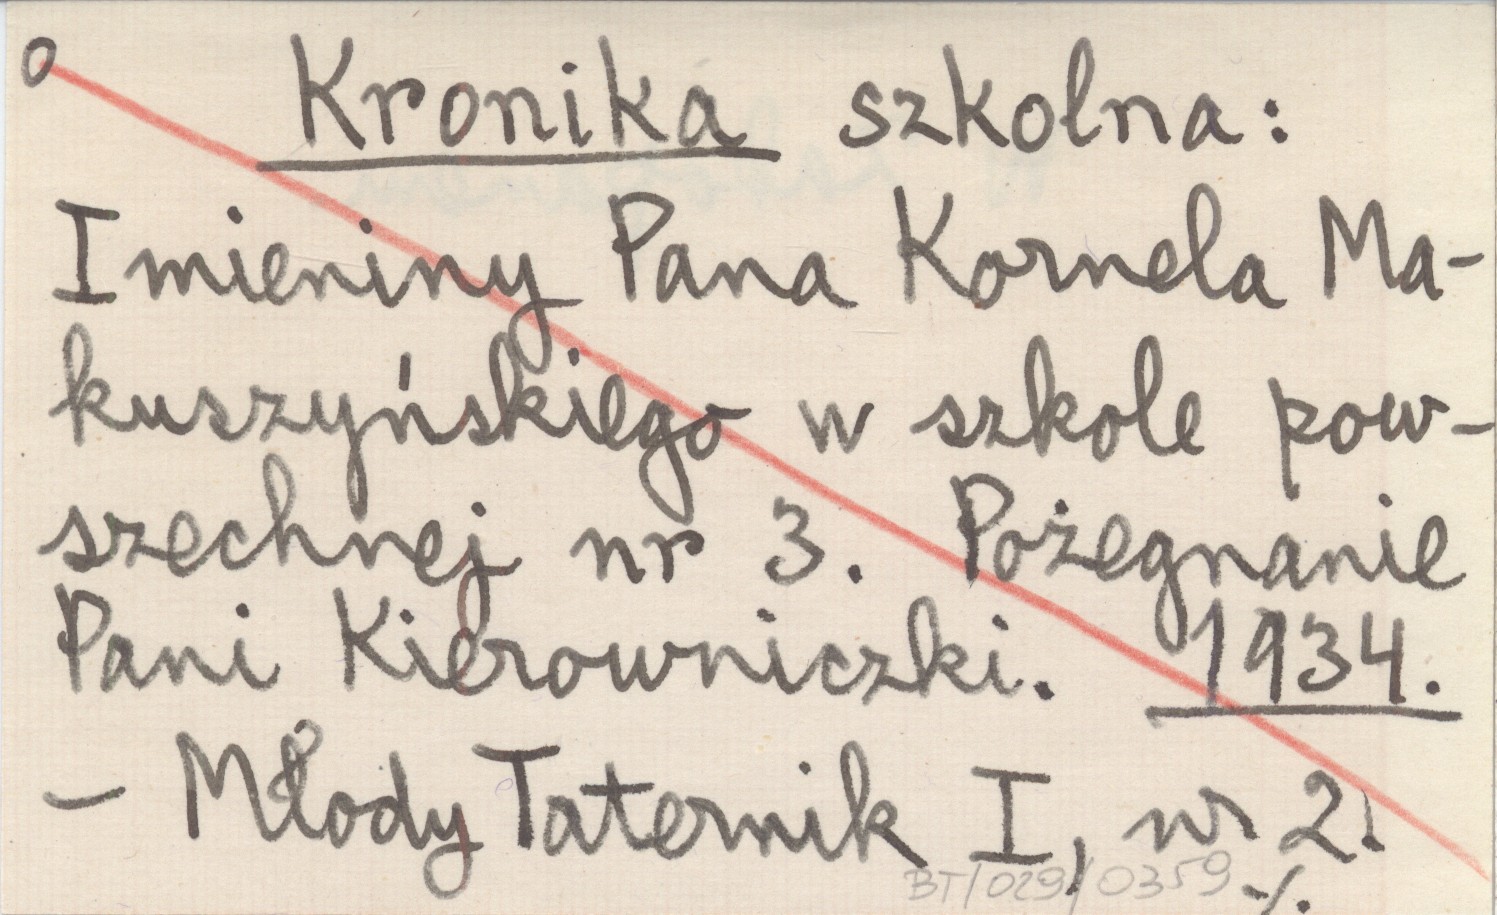 o
Kronika szkolna:
Imieniny Pana Kornela Ma-
kuszyńskiego w szkole pow-
szechnej nr 3. Pożegnanie
Pani Kierowniczki. 1934.
- Młody Taternik I, nr 2.
BT/029/0359 -/.